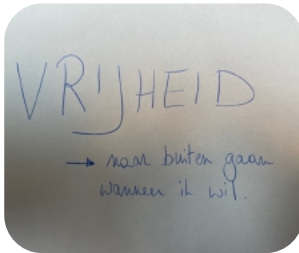 VRIJHEID
→ naar buiten gaan
wanneer ik wil.